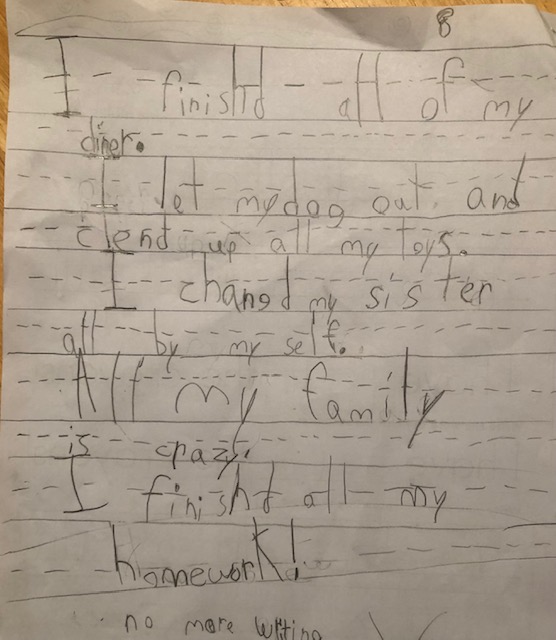 8
I finishd all of my
diner.
I let my dog out. and
clend up all my toys.
I changd my sister
all by my self.
All my family
is crazy.
I finishd all my
homework!
no more writing